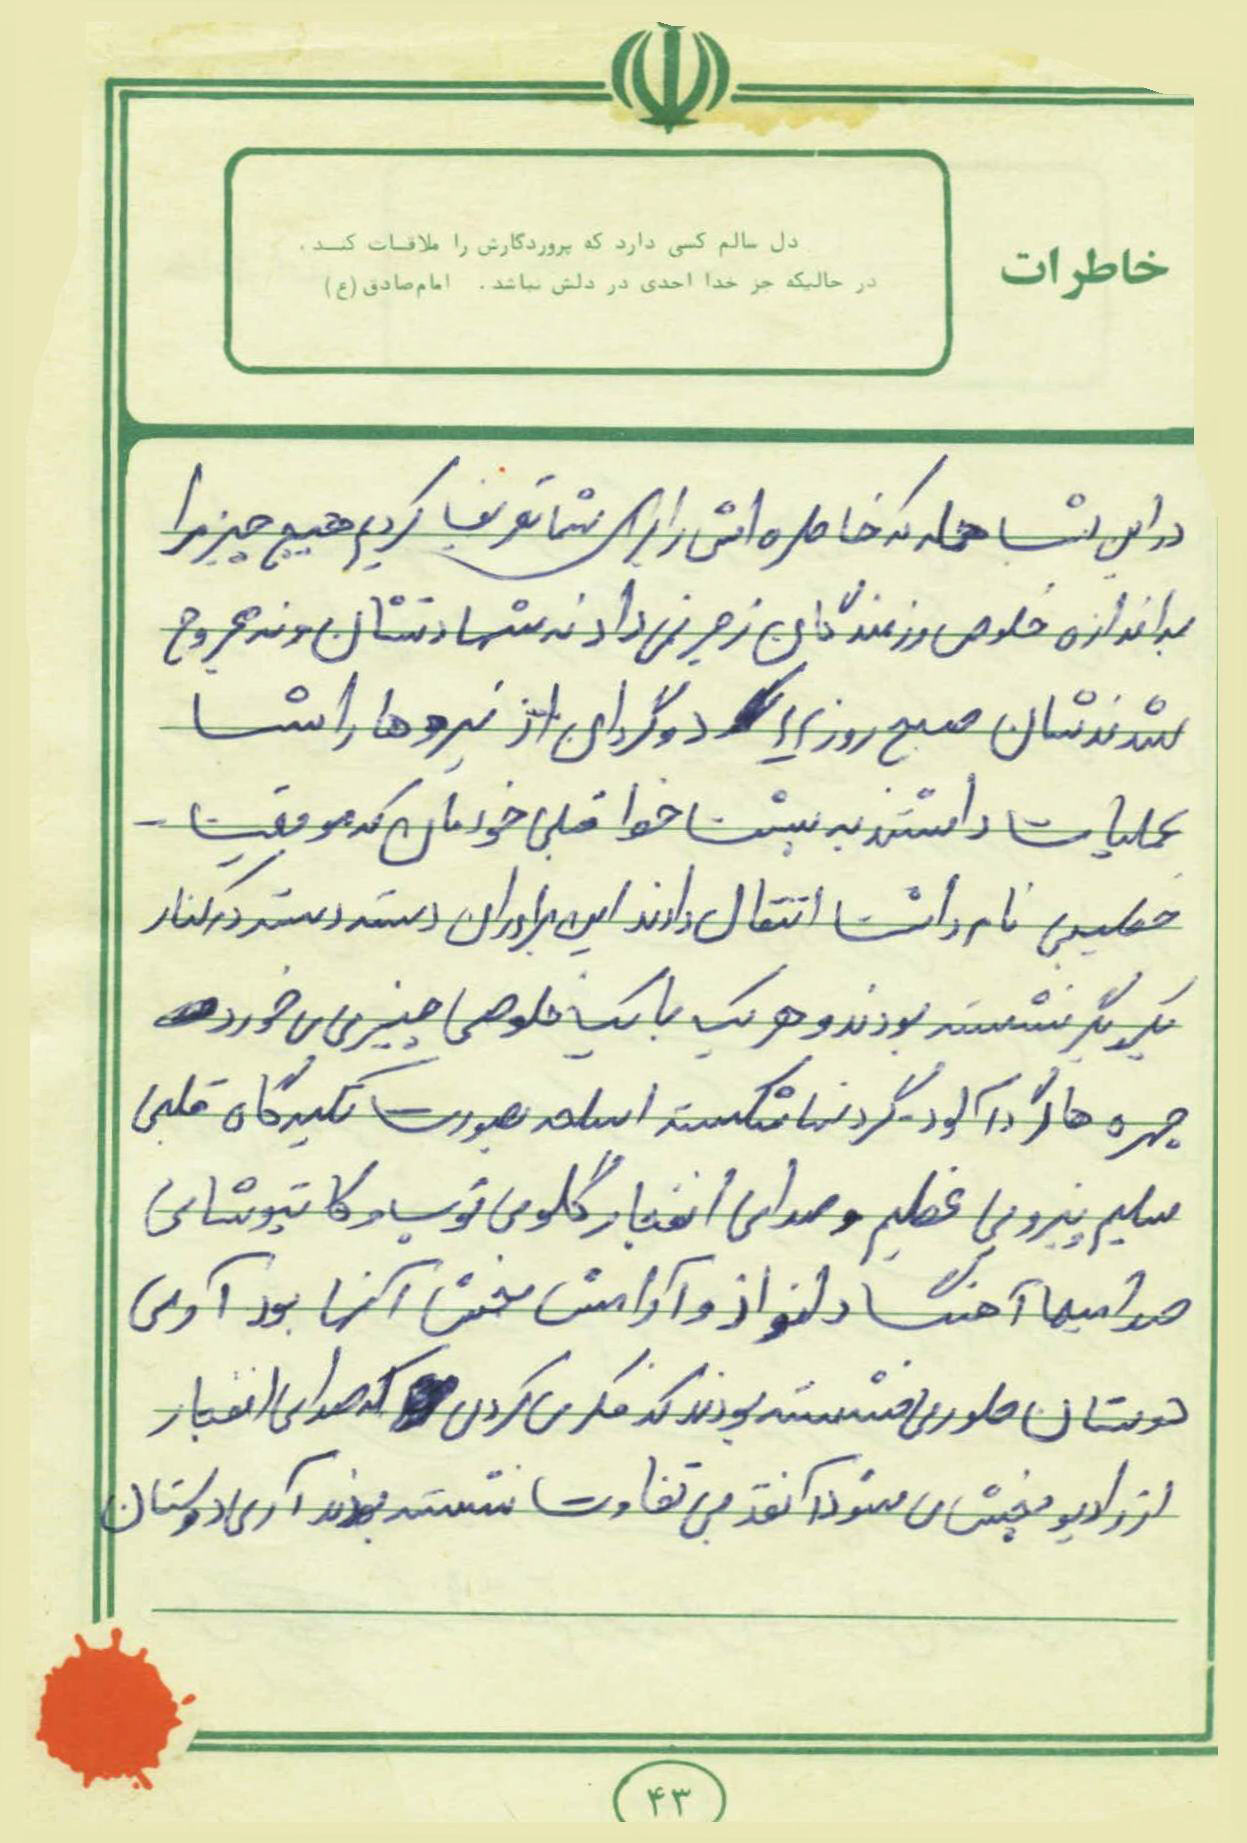 خاطرات
دل سالم کسی دارد که پروردگارش را ملاقات کند.
در حالیکه جز خدا احدی در دلش نباشد. امام صادق (ع)
در این شب حمله که خاطره اش را برای شما تعریف کردیم هیچ چیز مرا
به اندازه خلوص رزمندگان زجر نمی داد نه شهادتشان و نه مجروح
شدنشان صبح روز برای دو گردان از نیروها را شب
عملیات داشتند به پشت خط قبلی خودمان که موقعیت
خطیبی نام داشت انتقال دادند این برادران دسته دسته در کنار
یکدیگر نشسته بودند و هر یک با یک خلوصی چیزی می خورد
چهره ها گردآلود گردنها شکسته اسلحه بصورت تکیه گاه قلبی
سلیم نیرویی عظیم و صدای انفجار گلوی توپ و کاتیوشای
صدامیها آهنگ دلنواز و آرامش بخش آنها بود آری
دوستان طوری نشسته بودند که فکر می کردی که صدای انفجار
از رادیو پخش می شود آنقدر بی تفاوت نشسته بودند آری دوستان
۴۳